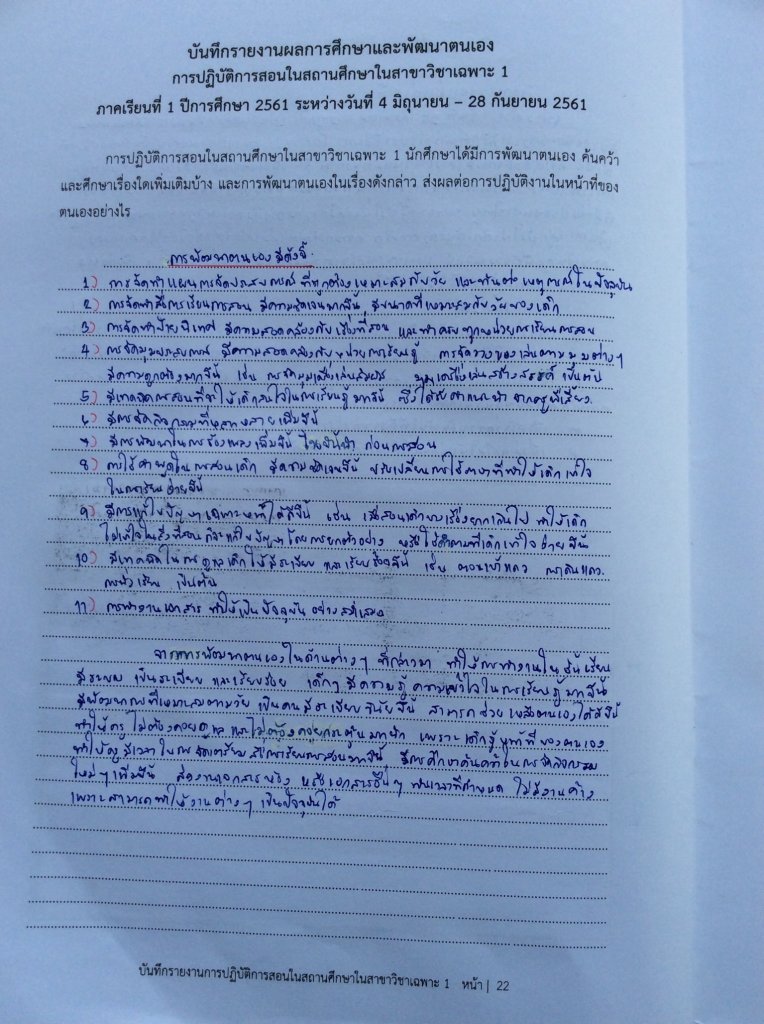 บันทึกรายงานผลการศึกษาและพัฒนาตนเอง
การปฏิบัติการสอนในสถานศึกษาในสาขาวิชาเฉพาะ 1
ภาคเรียนที่ 1 ปีการศึกษา 2561 ระหว่างวันที่ 4 มิถุนายน – 28 กันยายน 2561
การปฏิบัติการสอนในสถานศึกษาในสาขาวิชาเฉพาะ 1 นักศึกษาได้มีการพัฒนาตนเอง ค้นคว้า
และศึกษาเรื่องใดเพิ่มเติมบ้าง และการพัฒนาตนเองในเรื่องดังกล่าว ส่งผลต่อการปฏิบัติงานในหน้าที่ของ
ตนเองอย่างไร
การพัฒนาตนเองมีดังนี้
1) การจัดทำแผนการจัดประสบการณ์ที่ถูกต้องเหมาะสมกับวัย และทันต่อเหตุการณ์ในปัจจุบัน
2) การจัดทำสื่อการเรียนการสอน มีความชัดเจนมากขึ้น มีขนาดที่เหมาะสมกับวัยของเด็ก
3) การจัดทำป้ายนิเทศ มีความสอดคล้องกับเรื่องที่สอน และทำครบทุกหน่วยการเรียนการสอน
4) การจัดมุมประสบการณ์ มีความสอดคล้องกับหน่วยการเรียนรู้ การจัดวางของเล่นตามมุมต่างๆ
มีความถูกต้องมากขึ้น เช่น การจัดมุมเครื่องเล่นสัมผัส มุมเครื่องเล่นสร้างสรรค์ เป็นต้น
5) มีเทคนิคการสอนที่ทำให้เด็กสนใจในการเรียนรู้มากขึ้น ซึ่งได้รับคำแนะนำจากครูพี่เลี้ยง
6) มีการจัดกิจกรรมที่หลากหลายเพิ่มขึ้น
7) มีการพัฒนาในการร้องเพลงเพิ่มขึ้น ก่อนการสอน
8) การใช้คำพูดในการสอนเด็ก มีความชัดเจนขึ้น ปรับเปลี่ยนการใช้ภาษาที่ทำให้เด็กเข้าใจ
ในการเรียนง่ายขึ้น
9) มีการแก้ไขปัญหาเฉพาะหน้าได้ดีขึ้น เช่น เมื่อสอนเด็กบางเรื่องยากเกินไป ทำให้เด็ก
ไม่เข้าใจในสิ่งที่สอน ก็จะแก้ไขปัญหาโดยการยกตัวอย่าง หรือใช้คำถามที่เด็กเข้าใจง่ายขึ้น
10) มีเทคนิคในการดูแลเด็กให้มีระเบียบ และเรียบร้อยขึ้น เช่น ตอนเข้าแถว การเดินแถว
การเข้าเรียน เป็นต้น
11) การทำงานเอกสาร ทำให้เป็นปัจจุบันอย่างสม่ำเสมอ
จากการพัฒนาตนเองในด้านต่างๆ ที่กล่าวมา ทำให้การทำงานในชั้นเรียน
มีระบบ เป็นระเบียบ และเรียบร้อย เด็กๆ มีความรู้ ความเข้าใจในการเรียนรู้มากขึ้น
มีพัฒนาการที่เหมาะสมตามวัย เป็นคนมีระเบียบวินัยขึ้น สามารถช่วยเหลือตนเองได้ดีขึ้น
ทำให้ครูไม่ต้องคอยดูแลและไม่ต้องคอยกระตุ้นมากนัก เพราะเด็กรู้หน้าที่ของตนเอง
ทำให้ครูมีเวลาในการจัดเตรียมสื่อการเรียนการสอนมากขึ้น มีการศึกษาค้นคว้าในการจัดกิจกรรม
ใหม่ๆ เพิ่มขึ้น ส่งงานเอกสารห้อง หรือเอกสารอื่นๆ ทันเวลาที่กำหนด ไม่มีงานค้าง
เพราะสามารถทำให้งานต่างๆ เป็นปัจจุบันได้
บันทึกรายงานการปฏิบัติการสอนในสถานศึกษาในสาขาวิชาเฉพาะ 1 หน้า | 22